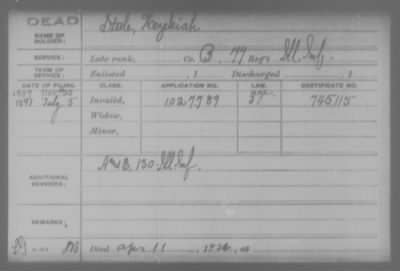 DEAD
NAME OF SOLDIER:
Steele, Hezekiah
SERVICE: Late rank, Co. B, 77 Reg't Ill Inf.
TERM OF SERVICE: Enlisted , 1 Discharged , 1
DATE OF FILING. CLASS. APPLICATION NO. LAW. CERTIFICATE NO.
1891 July 5 Invalid, 1027789 745115
Widow,
Minor,
ADDITIONAL SERVICES:
A and B. 130 Ill Inf.
REMARKS:
Died Apr 11, 1926, at